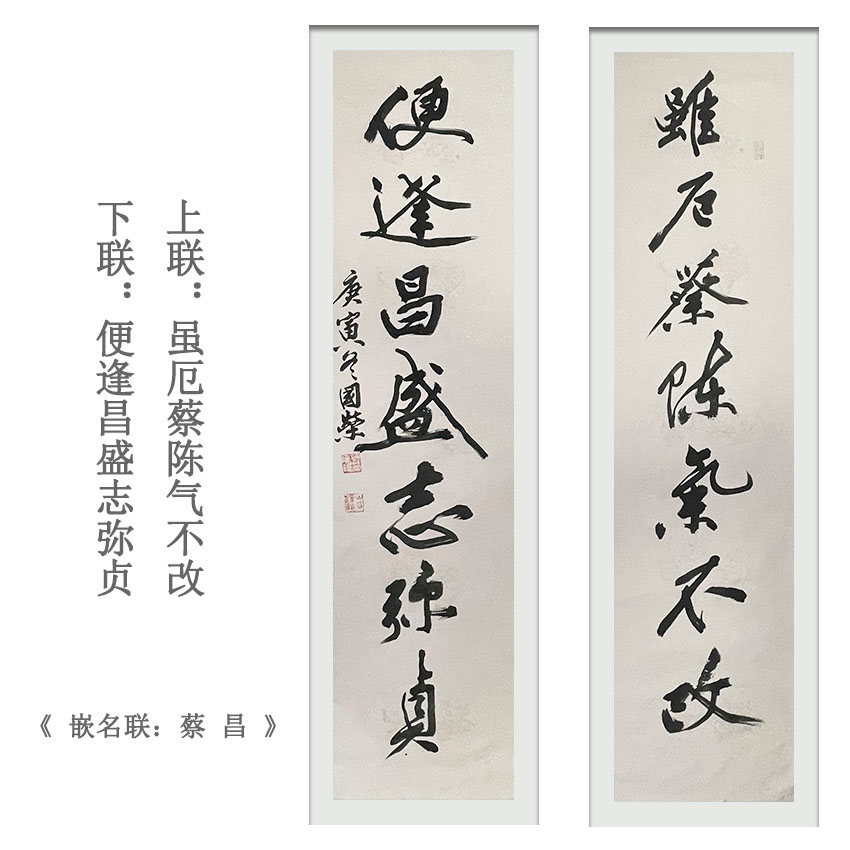 上联：虽厄蔡陈气不改
下联：便逢昌盛志弥贞
《 嵌名联：蔡 昌 》
雖厄蔡陳氣不改
便逢昌盛志弥貞
庚寅冬國榮